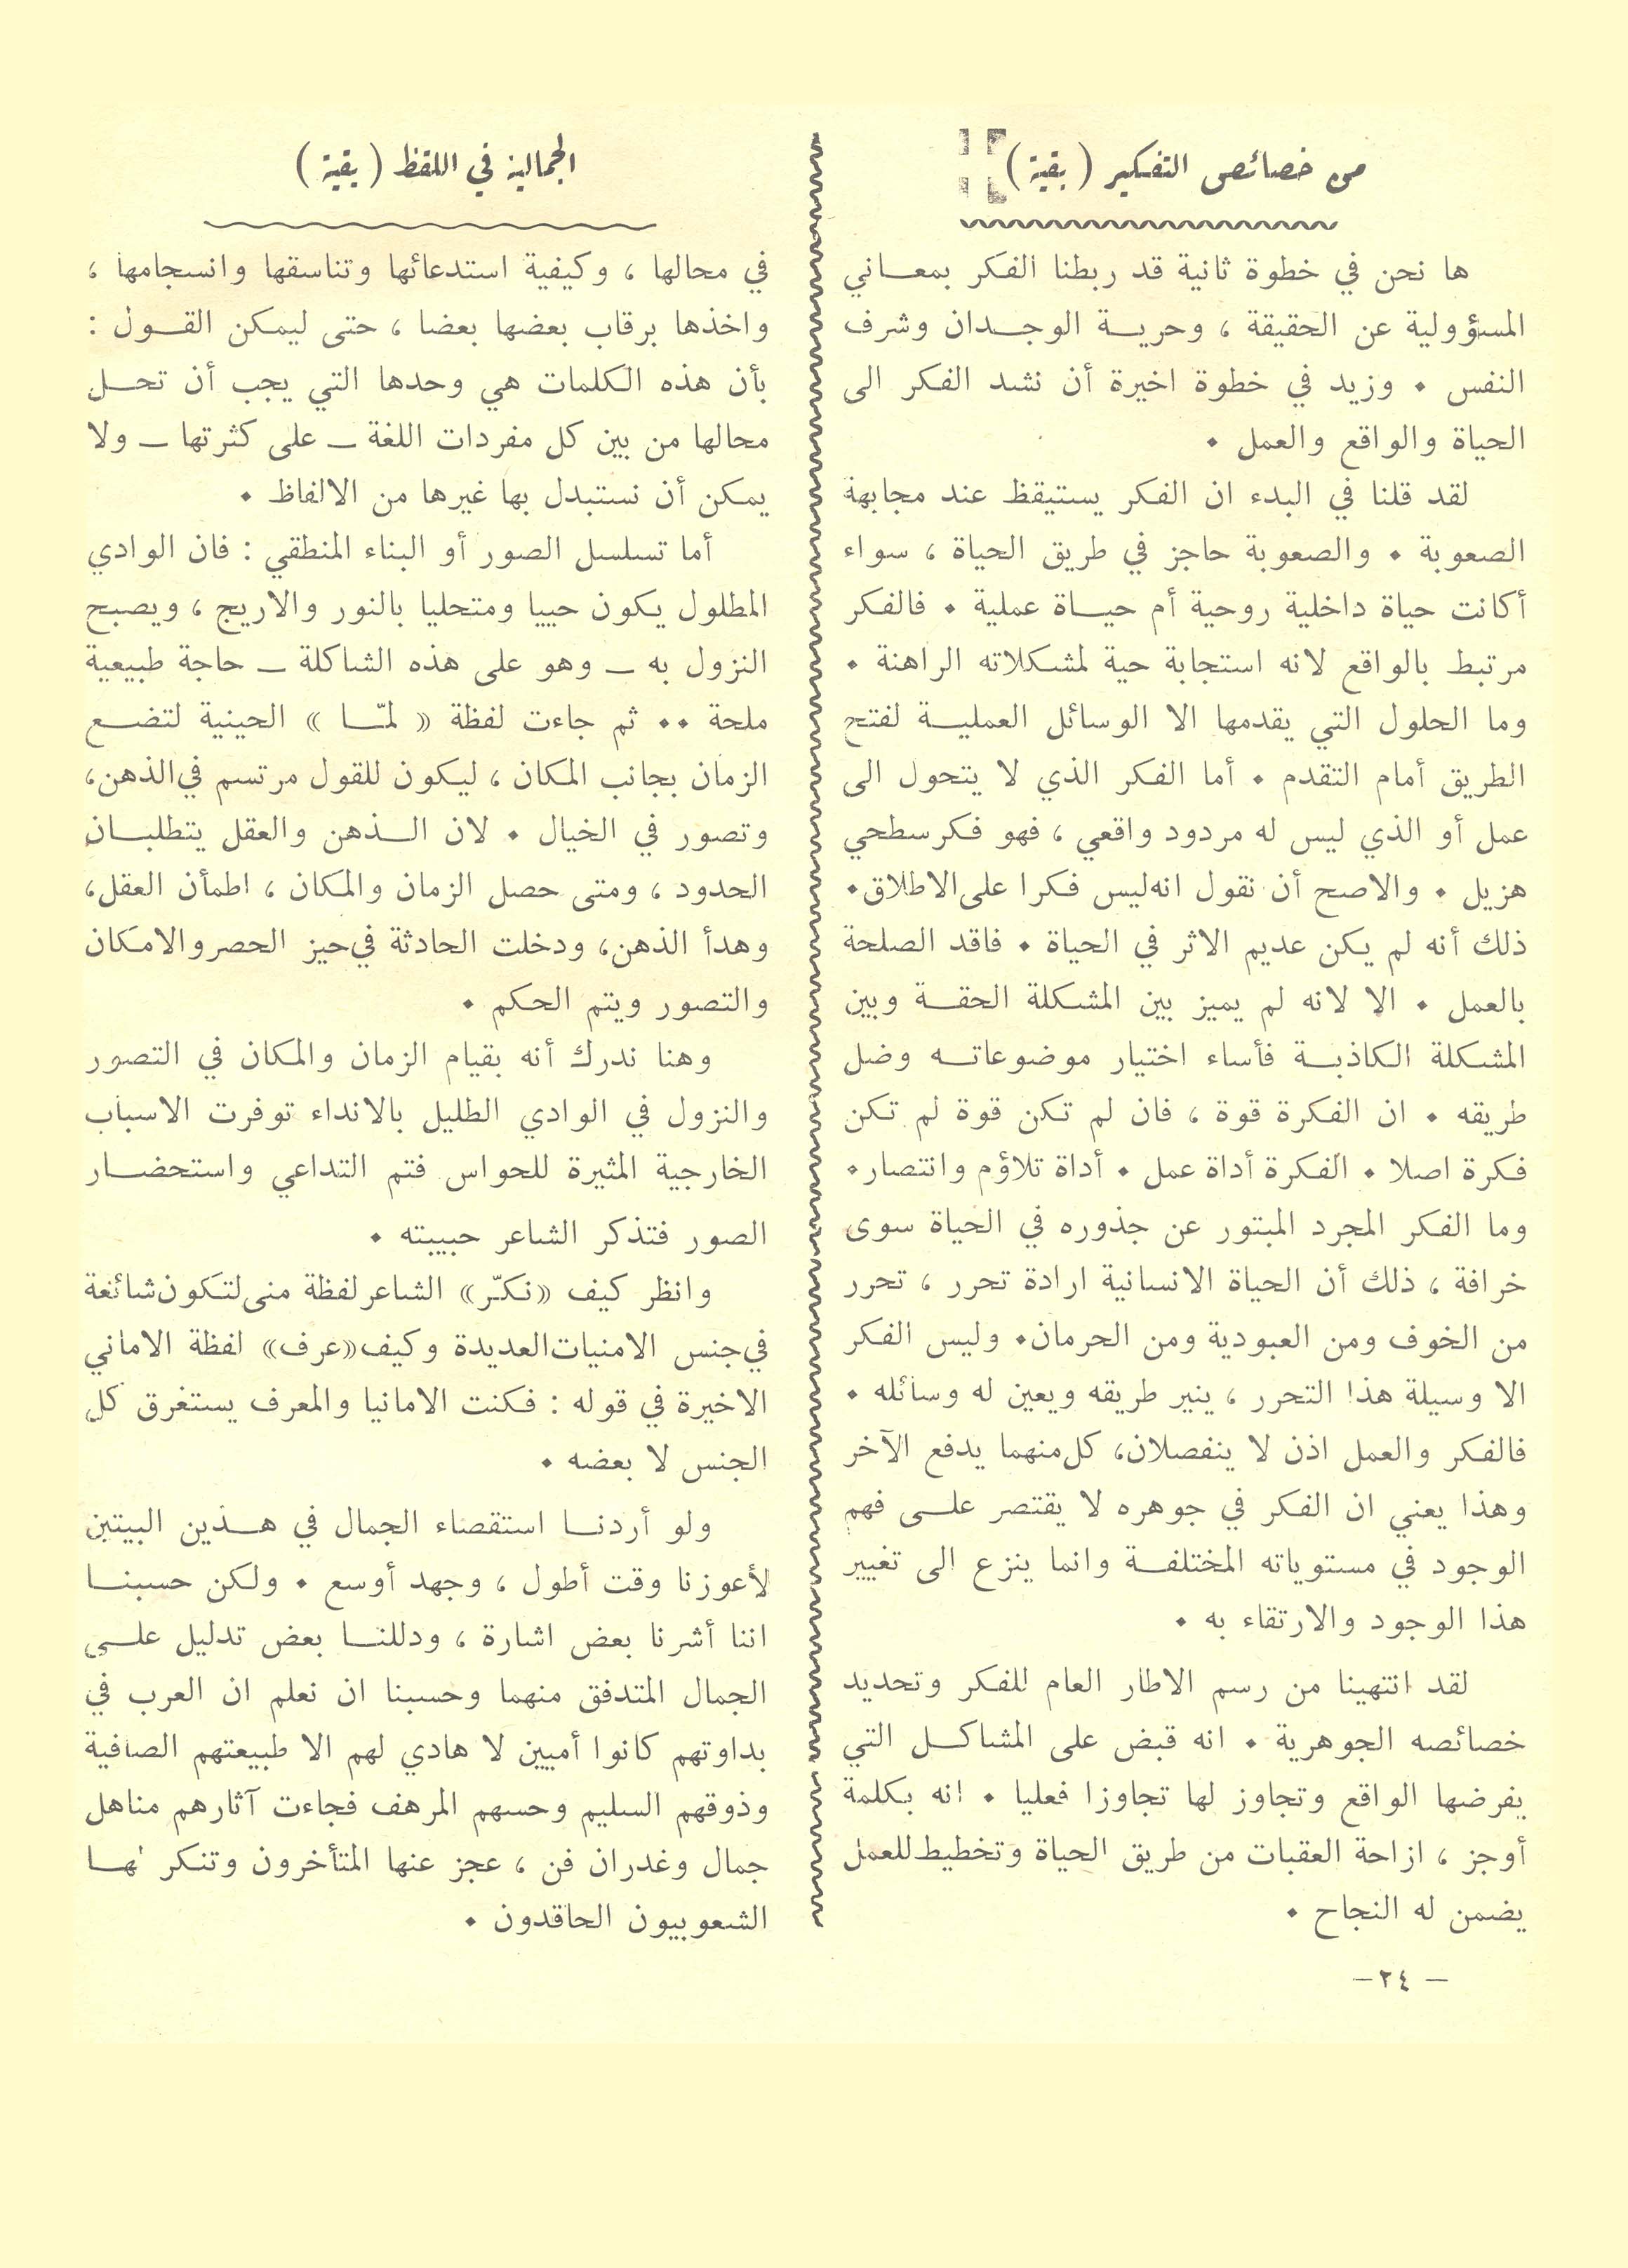 من خصائص التفكير ( بقية )
ها نحن في خطوة ثانية قد ربطنا الفكر بمعـاني
المسؤولية عن الحقيقة ، وحريـة الوجـدان وشرف
النفس ٠ وزيد في خطوة اخيرة أن نشد الفكر الى
الحياة والواقع والعمل ٠
لقد قلنا في البدء ان الفكر يستيقظ عند مجابهة
الصعوبة ٠ والصعوبة حاجز في طريق الحياة ، سواء
أكانت حياة داخلية روحية أم حيـاة عملية ٠ فالفكر
مرتبط بالواقع لانه استجابة حية لمشكلاته الراهنة ٠
وما الحلول التي يقدمها الا الوسائل العمليـة لفتح
الطريق أمام التقدم ٠ أما الفكر الذي لا يتحول الى
عمل أو الذي ليس له مردود واقعي ، فهو فكر سطحي
هزيل ٠ والاصح أن نقول انه ليس فكرا على الاطلاق٠
ذلك أنه لم يكن عديم الاثر في الحياة ٠ فاقد الصلحة
بالعمل ٠ الا لانه لم يميز بين المشكلة الحقـة وبين
المشكلة الكاذبـة فأساء اختيار موضوعاتـه وضل
طريقه ٠ ان الفكرة قوة ، فان لم تكن قوة لم تكن
فكرة اصلا ٠ الفكرة أداة عمل ٠ أداة تلاؤم وانتصار٠
وما الفكر المجرد المبتور عن جذوره في الحياة سوى
خرافة ، ذلك أن الحياة الانسانية ارادة تحرر ، تحرر
من الخوف ومن العبودية ومن الحرمان٠ وليس الفكر
الا وسيلة هذا التحرر ، ينير طريقه ويعين له وسائله ٠
فالفكر والعمل اذن لا ينفصلان، كل منهما يدفع الآخر
وهذا يعني ان الفكر في جوهره لا يقتصر علـى فهم
الوجود في مستوياته المختلفـة وانما ينزع الى تغيير
هذا الوجود والارتقاء به ٠
لقد انتهينا من رسم الاطار العام للفكر وتحديد
خصائصه الجوهرية ٠ انه قبض على المشاكـل التي
يفرضها الواقع وتجاوز لها تجاوزا فعليا ٠ انه بكلمة
أوجز ، ازاحة العقبات من طريق الحياة وتخطيط للعمل
يضمن له النجاح ٠
الجمالية في اللفظ ( بقية )
في محالها ، وكيفية استدعائها وتناسقها وانسجامها ،
واخذها برقاب بعضها بعضا ، حتى ليمكن القـول :
بأن هذه الكلمات هي وحدها التي يجب أن تحـل
محالها من بين كل مفردات اللغة ـ على كثرتها ـ ولا
يمكن أن نستبدل بها غيرها من الالفاظ ٠
أما تسلسل الصور أو البناء المنطقي : فان الوادي
المطلول يكون حييا ومتحليا بالنور والاريج ، ويصبح
النزول به ـ وهو على هذه الشاكلة ـ حاجة طبيعية
ملحة ٠٠ ثم جاءت لفظة « لمّـا » الحينية لتضـع
الزمان بجانب المكان ، ليكون للقول مرتسم في الذهن،
وتصور في الخيال ٠ لان الـذهن والعقل يتطلبـان
الحدود ، ومتى حصل الزمان والمكان ، اطمأن العقل،
وهدأ الذهن، ودخلت الحادثة في حيز الحصر والامكان
والتصور ويتم الحكم ٠
وهنا ندرك أنه بقيام الزمان والمكان في التصور
والنزول في الوادي الظليل بالانداء توفرت الاسباب
الخارجية المثيرة للحواس فتم التداعي واستحضـار
الصور فتذكر الشاعر حبيبته ٠
وانظر كيف «نكّر» الشاعر لفظة منى لتكون شائعة
في جنس الامنيات العديدة وكيف «عرف» لفظة الاماني
الاخيرة في قوله : فكنت الامانيا والمعرف يستغرق كل
الجنس لا بعضه ٠
ولو أردنـا استقصاء الجمال في هـذين البيتين
لأعوزنا وقت أطول ، وجهد أوسع ٠ ولكن حسبنـا
اننا أشرنا بعض اشارة ، ودللنـا بعض تدليل علـى
الجمال المتدفق منهما وحسبنا ان نعلم ان العرب في
بداوتهم كانوا أميين لا هادي لهم الا طبيعتهم الصافية
وذوقهم السليم وحسهم المرهف فجاءت آثارهم مناهل
جمال وغدران فن ، عجز عنها المتأخرون وتنكر لهـا
الشعوبيون الحاقدون ٠
— ٢٤ —